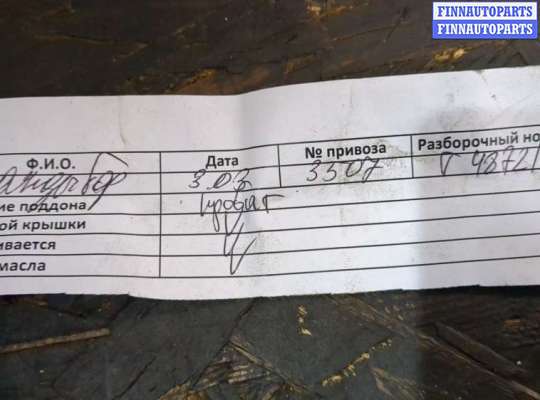 FINNAUTOPARTS
FINNAUTOPARTS
Ф.И.О. Дата № привоза Разборочный но
3.03 3507 Г 4872
ие поддона
ой крышки
ивается
масла